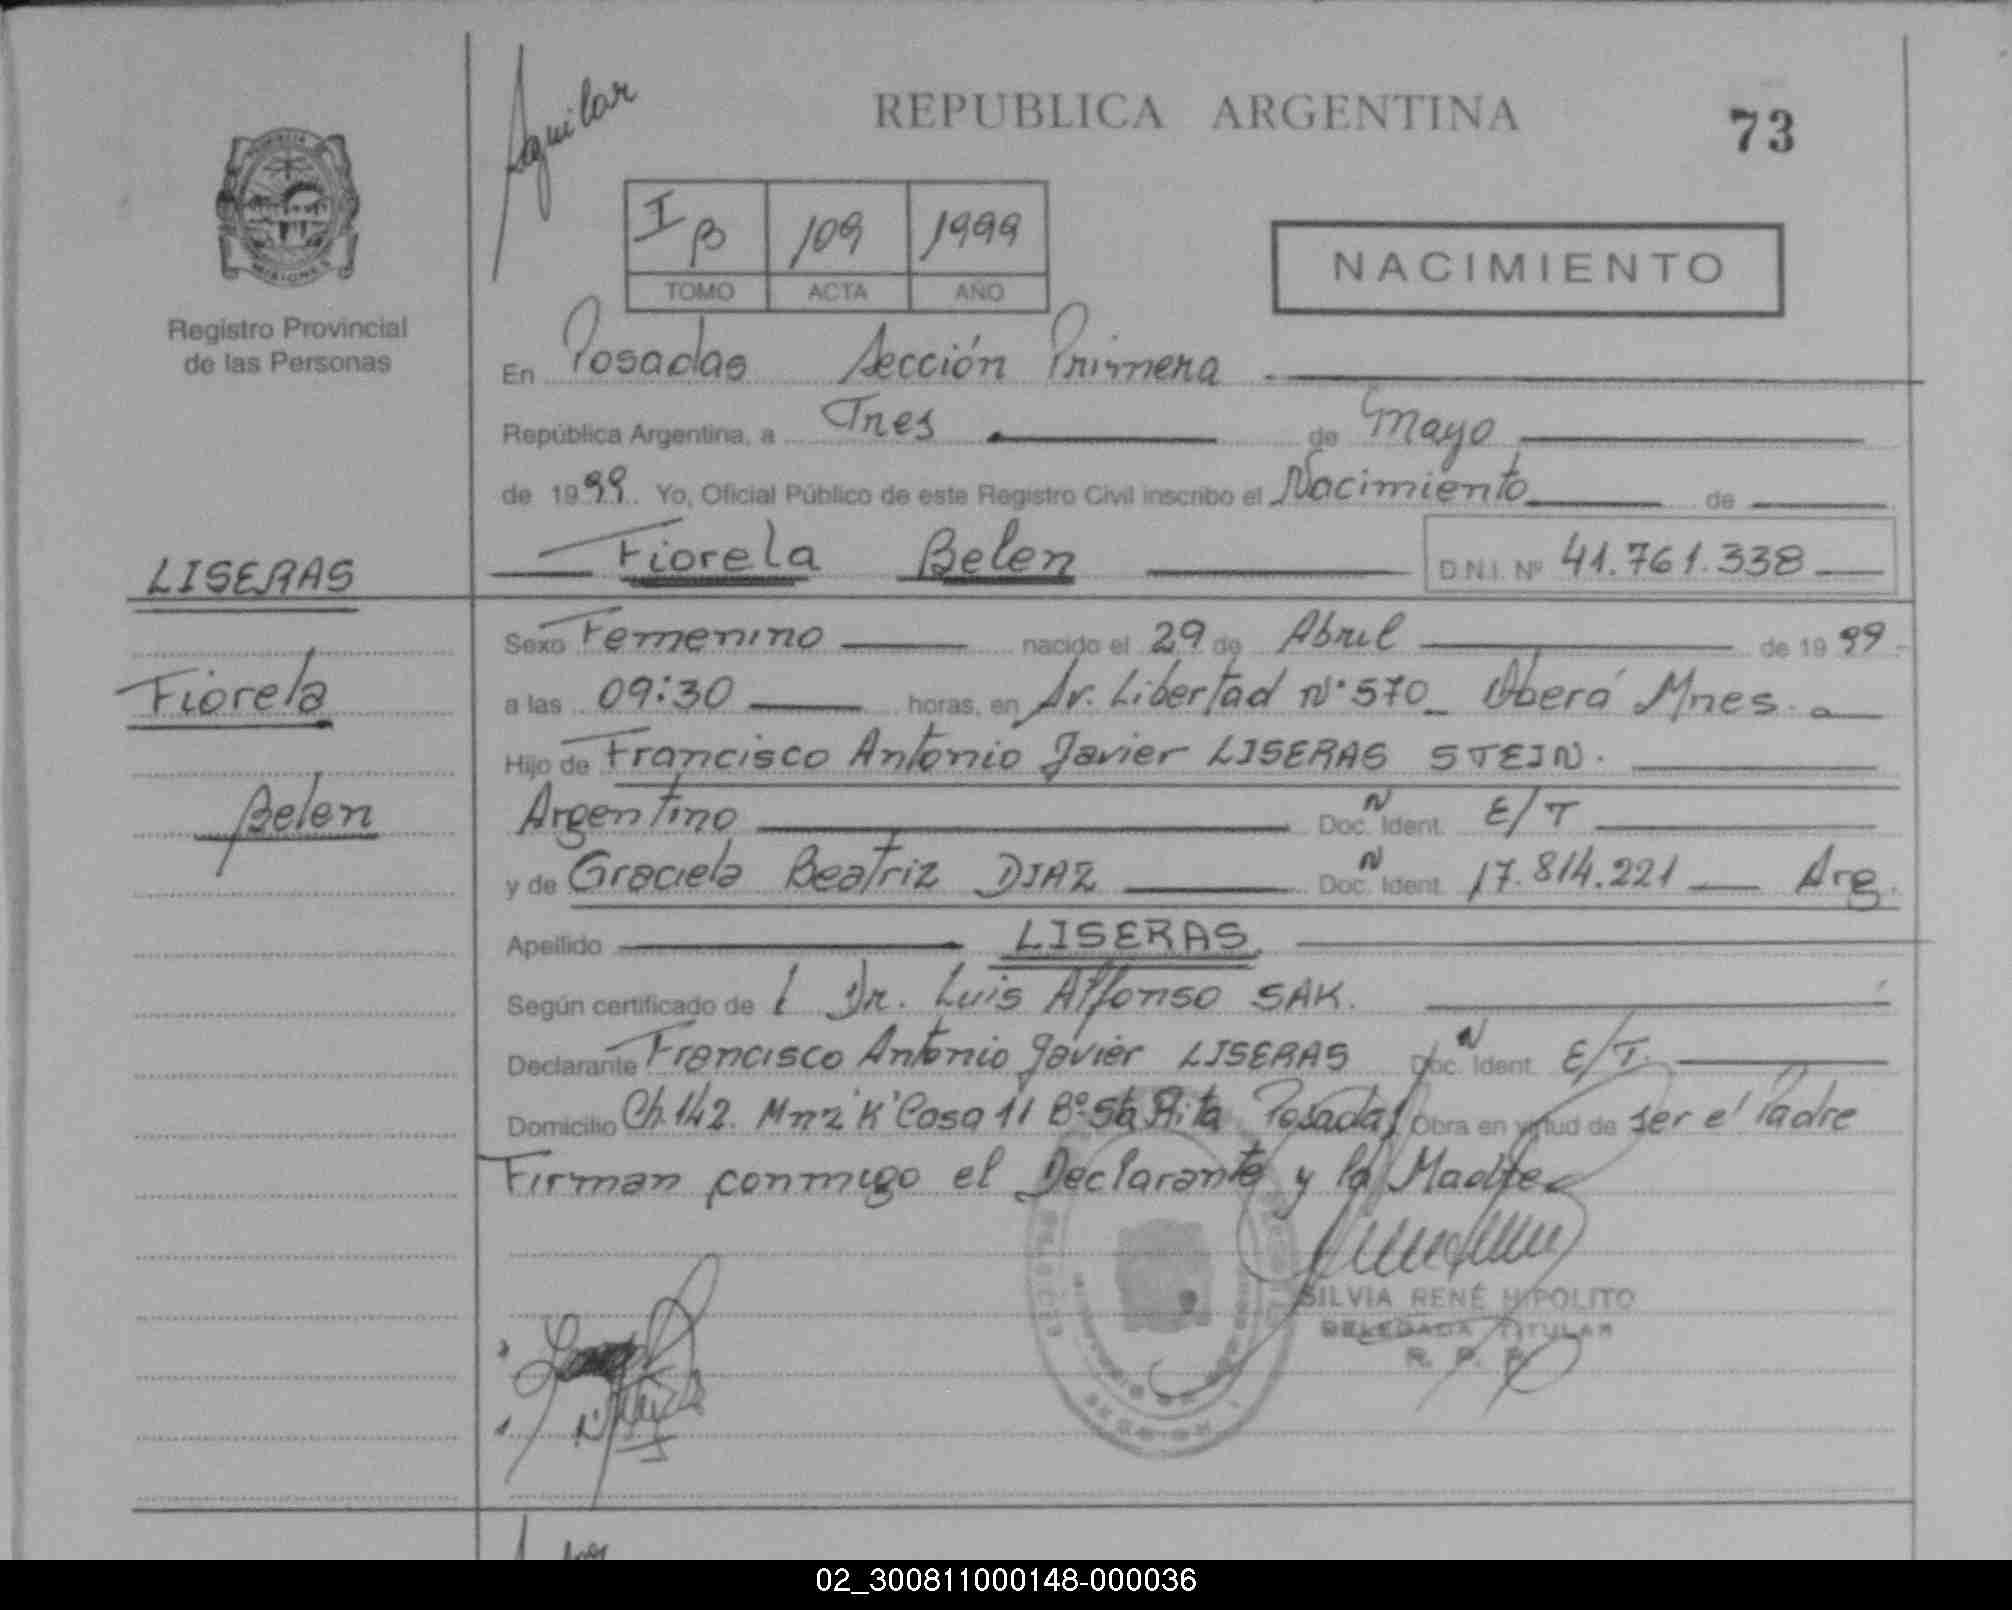 Aguilar
REPUBLICA ARGENTINA
73
I B 109 1999
TOMO ACTA AÑO
NACIMIENTO
MISIONES
Registro Provincial
de las Personas
En Posadas Sección Primera
República Argentina, a Tres de Mayo
de 1999. Yo, Oficial Público de este Registro Civil inscribo el Nacimiento de
LISERAS
Fiorela
Belen
Fiorela Belen D.N.I. Nº 41.761.338
Sexo Femenino nacido el 29 de Abril de 1999.
a las 09:30 horas, en Av. Libertad Nº 570_ Oberá Mnes.
Hijo de Francisco Antonio Javier LISERAS STEIN.
Argentino Doc. N Ident. E/T
y de Graciela Beatriz DIAZ Doc. N Ident. 17.814.221 Arg.
Apellido LISERAS.
Según certificado de / Dr. Luis Alfonso SAK.
Declarante Francisco Antonio Javier LISERAS Doc. N Ident. E/T.
Domicilio Ch. 142. Mnz "K" Casa 11 Bº Sta Rita Posadas Obra en virtud de ser el Padre
Firman conmigo el Declarante y la Madre
SILVIA RENÉ HIPOLITO
DELEGADA TITULAR
R. P. P.
02_300811000148-000036